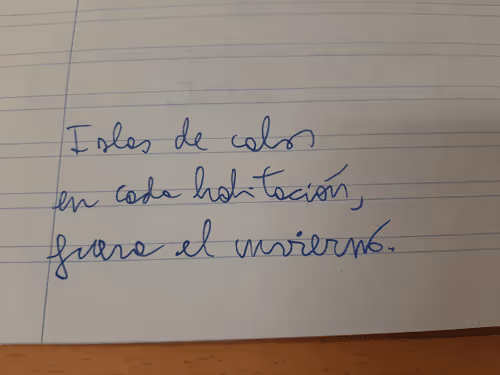 Islas de calor
en cada habitación,
fuera el invierno.